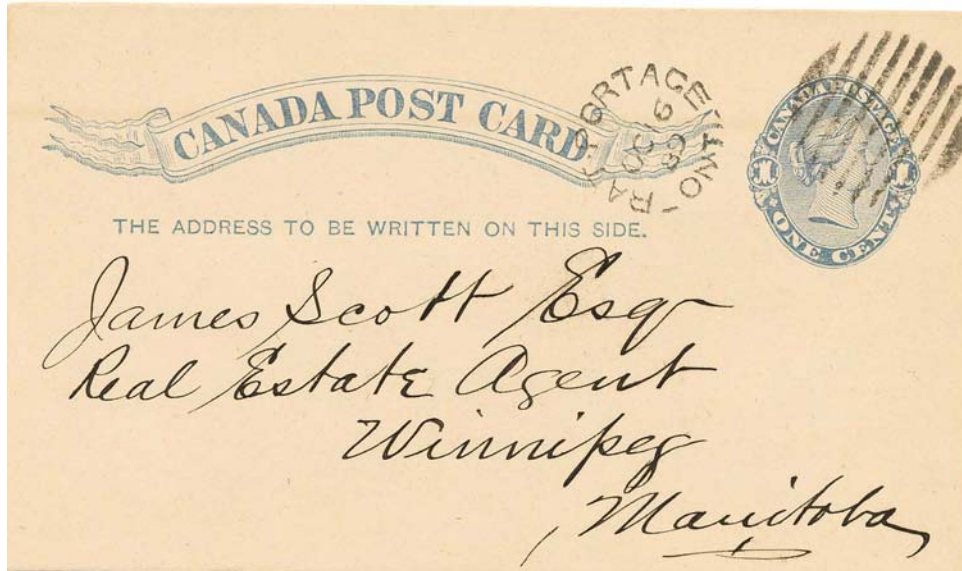 CANADA POST CARD
RAT PORTAGE
OC 6
89
ONT
CANADA POSTAGE
1 1
ONE CENT
THE ADDRESS TO BE WRITTEN ON THIS SIDE.
James Scott Esqr
Real Estate Agent
Winnipeg
Manitoba